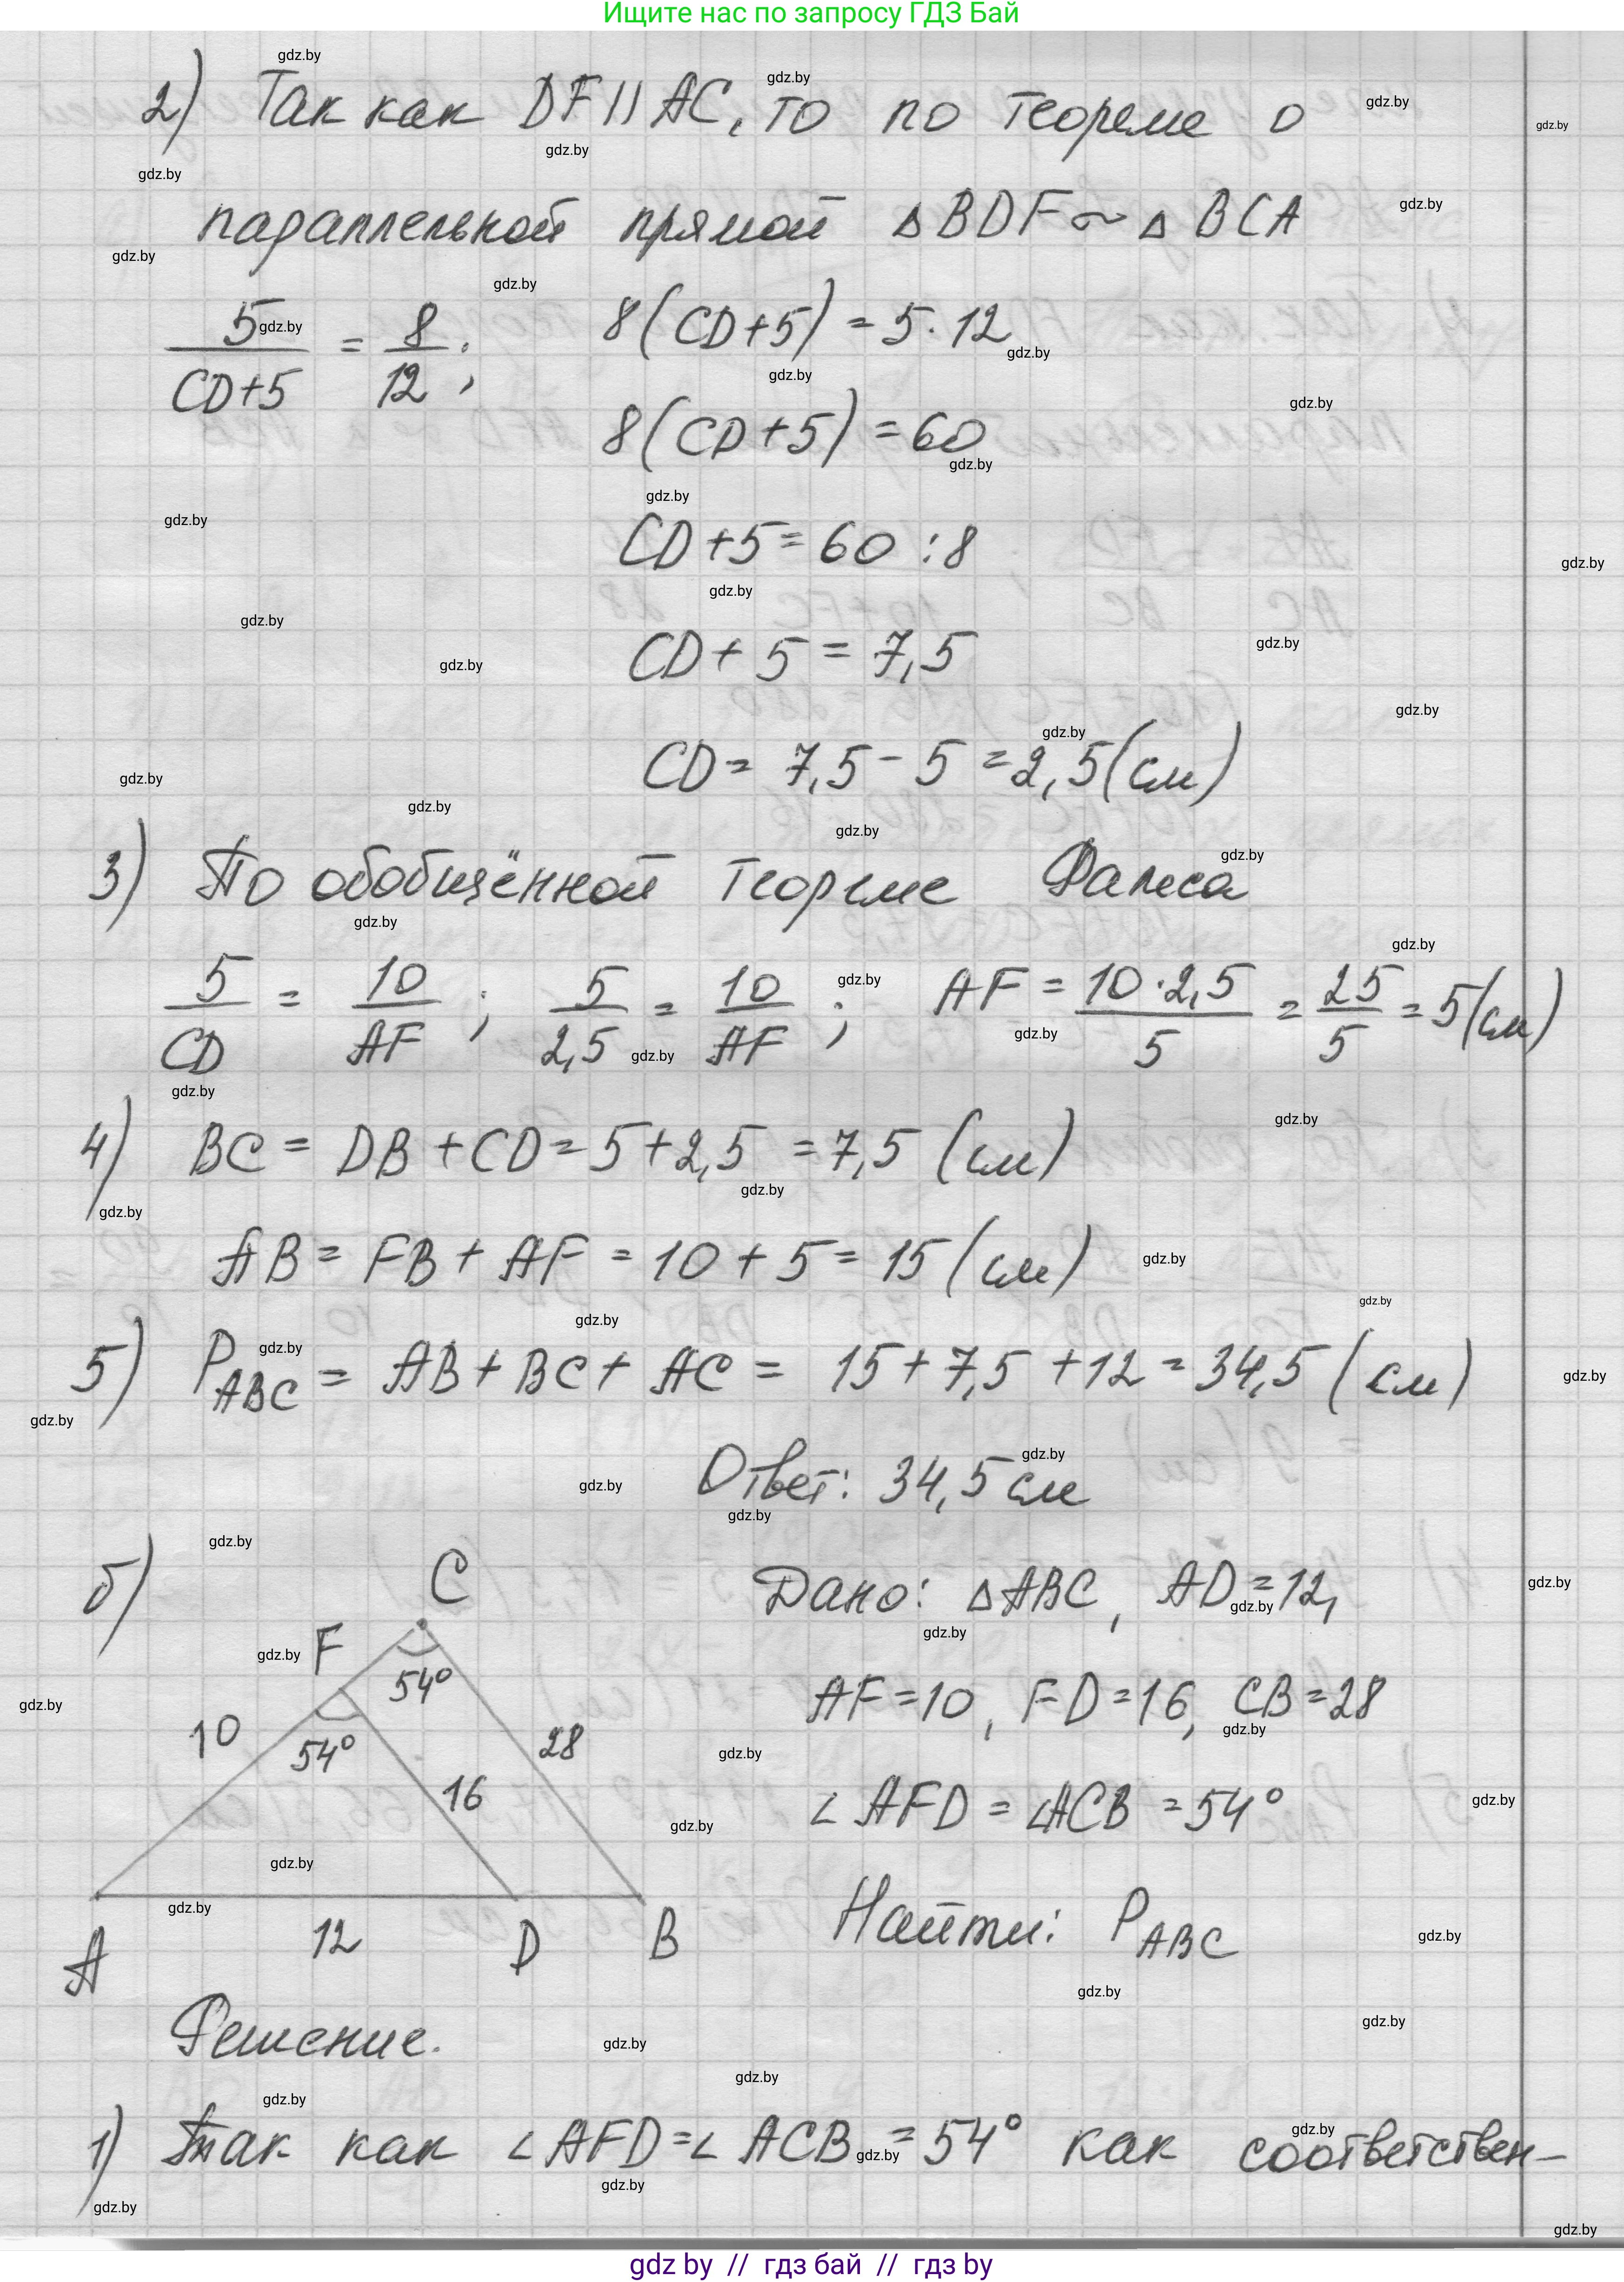 Ищите нас по запросу ГДЗ Бай
2) Так как DF || AC, то по теореме о
параллельной прямой ∆ BDF ~ ∆ BCA
5/(CD+5) = 8/12; 8(CD+5) = 5·12
8(CD+5) = 60
CD+5 = 60 : 8
CD + 5 = 7,5
CD = 7,5 - 5 = 2,5 (см)
3) По обобщённой теореме Фалеса
5/CD = 10/AF ; 5/2,5 = 10/AF ; AF = 10·2,5/5 = 25/5 = 5 (см)
4) BC = DB + CD = 5 + 2,5 = 7,5 (см)
AB = FB + AF = 10 + 5 = 15 (см)
5) P ABC = AB + BC + AC = 15 + 7,5 + 12 = 34,5 (см)
Ответ: 34,5 см
б)
C
F
54°
10
54°
28
16
A
12
D
B
Дано: ∆ ABC, AD = 12,
AF = 10, FD = 16, CB = 28
∠ AFD = ∠ACB = 54°
Найти: P ABC
Решение.
1) Так как ∠ AFD = ∠ ACB = 54° как соответствен-
gdz by // гдз бай // гдз by